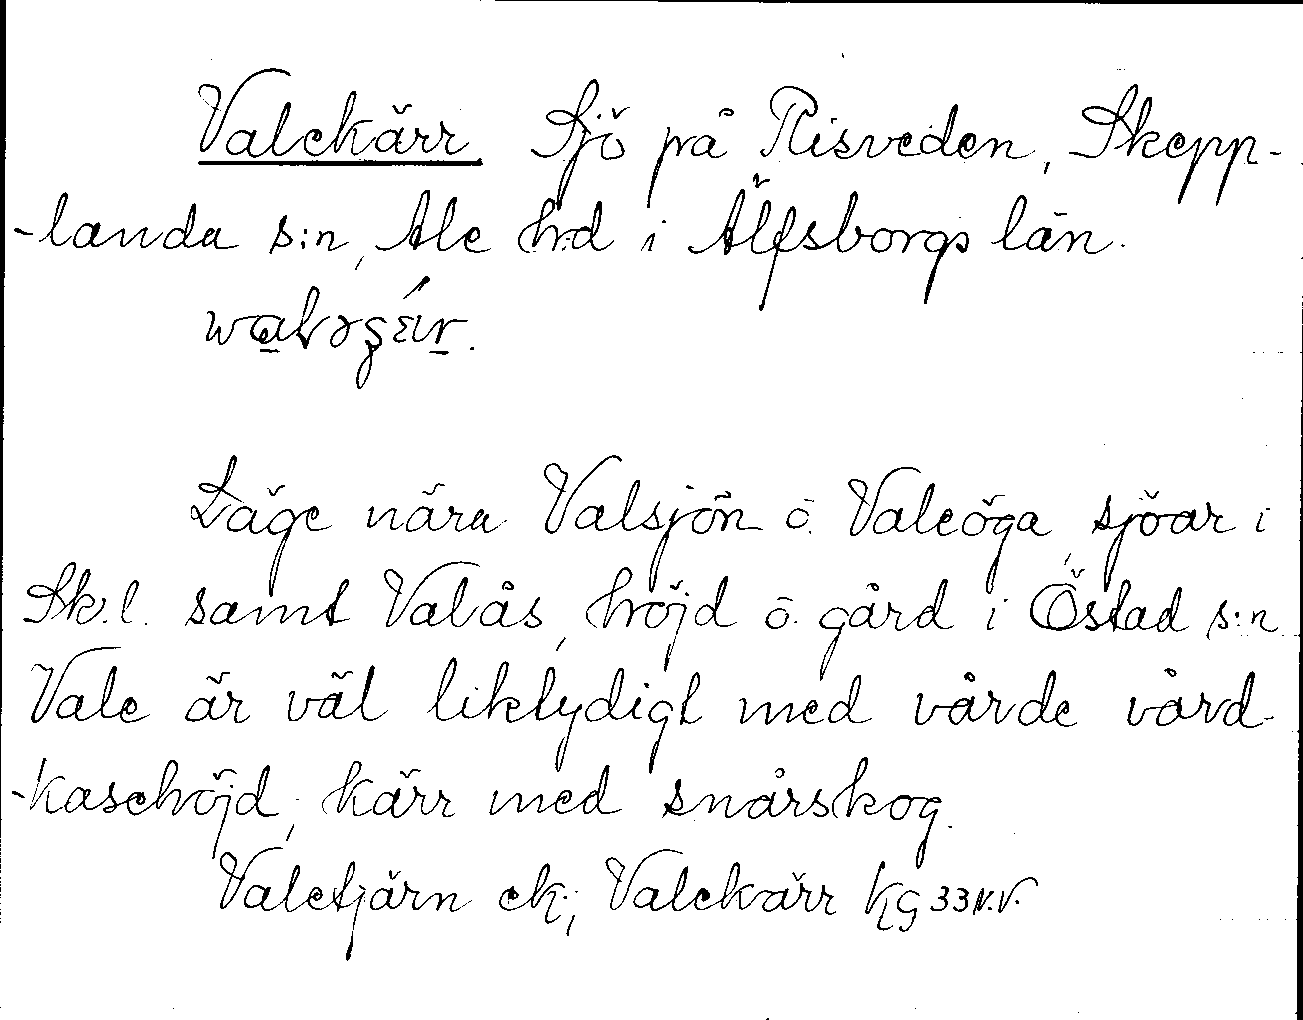 Valekärr Sjö på Risveden, Skepp-
-landa s:n, Ale h:d i Älfsborgs län.
Läge nära Valsjön o. Valeöga, sjöar i
Sk.l. samt Valås, höjd o. gård i Östad s:n
Vale är väl liktydigt med vårde vård-
-kasehöjd, kärr med snårskog.
Valetjärn ek; Valekärr KG 33 N.V.